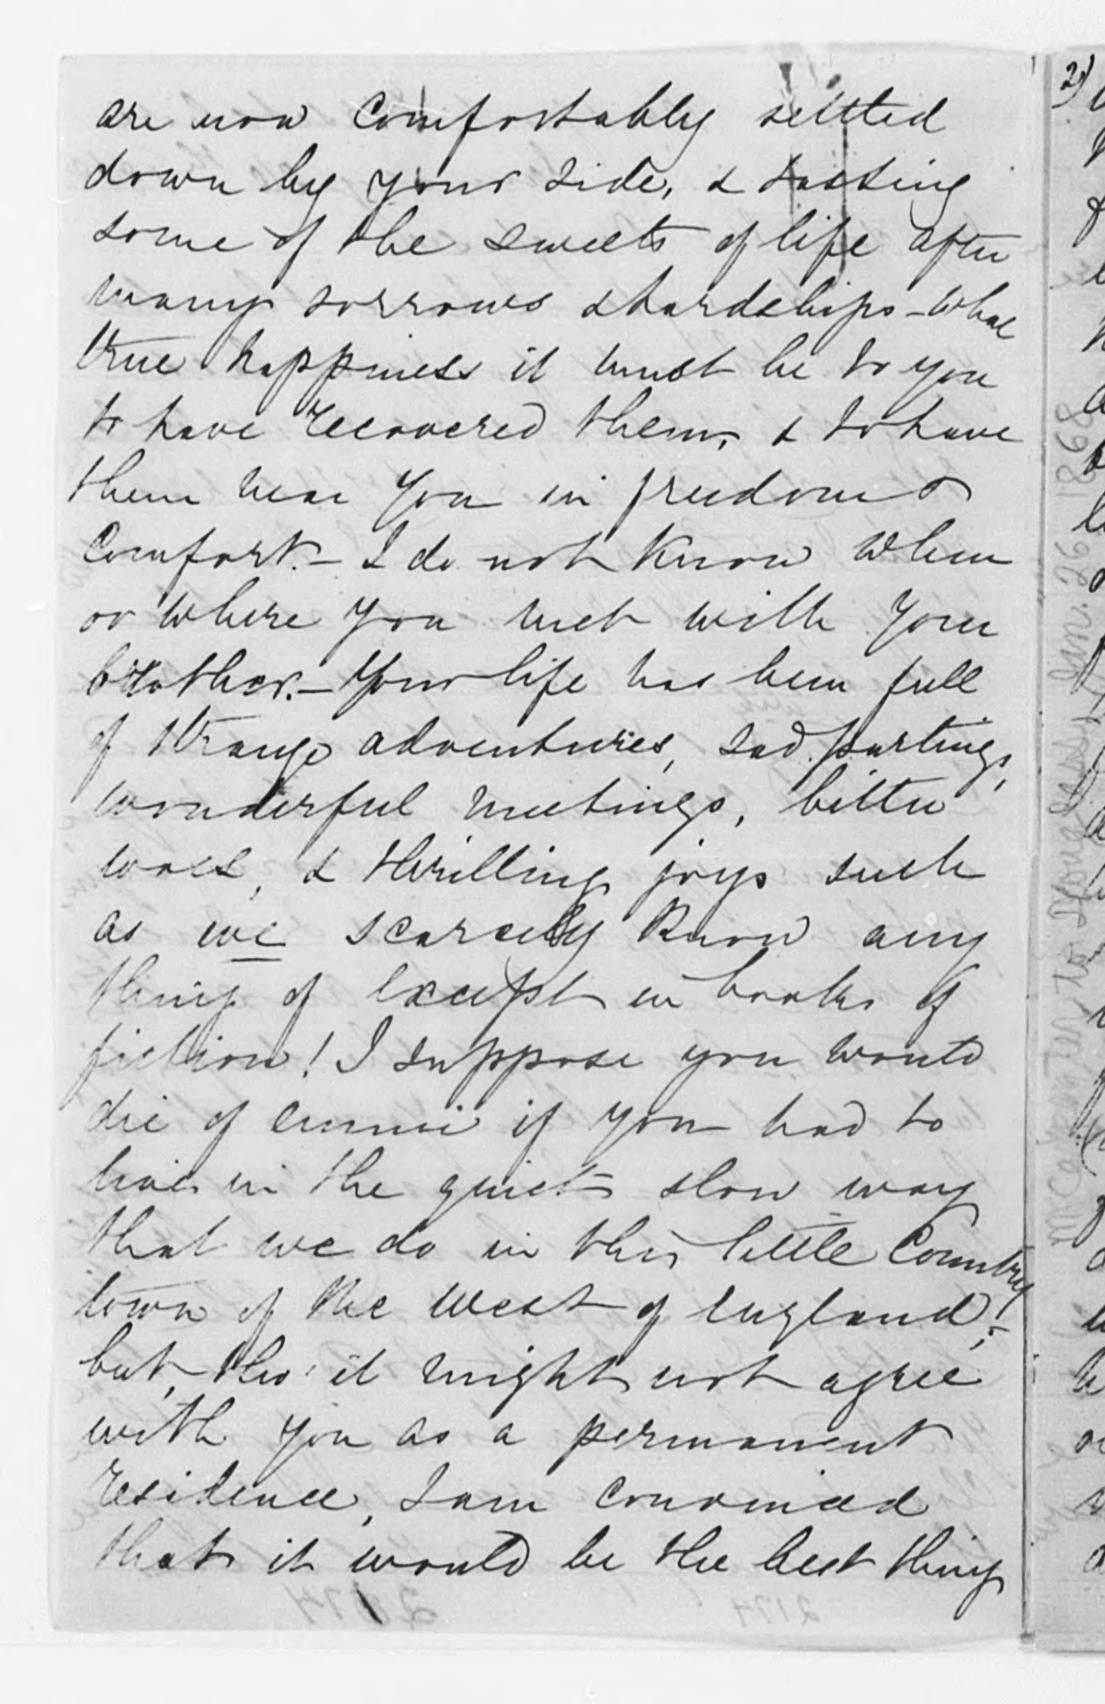 are now comfortably settled
down by your side, & tasting
some of the sweets of life after
many sorrows & hardships - What
true happiness it must be to you
to have recovered them, & to have
them near you in freedom &
Comfort. - I do not know when
or where you met with your
brother. - Your life has been full
of strange adventures, sad partings,
wonderful meetings, bitter
woes, & thrilling joys such
as we scarcely know any
thing of except in books of
fiction! I suppose you would
die of ennui if you had to
live in the quiet slow way
that we do in this little Country
town of the West of England! -
but, tho' it might not agree
with you as a permanent
residence, I am convinced
that it would be the best thing
2)
Jan. 26 1868
2174